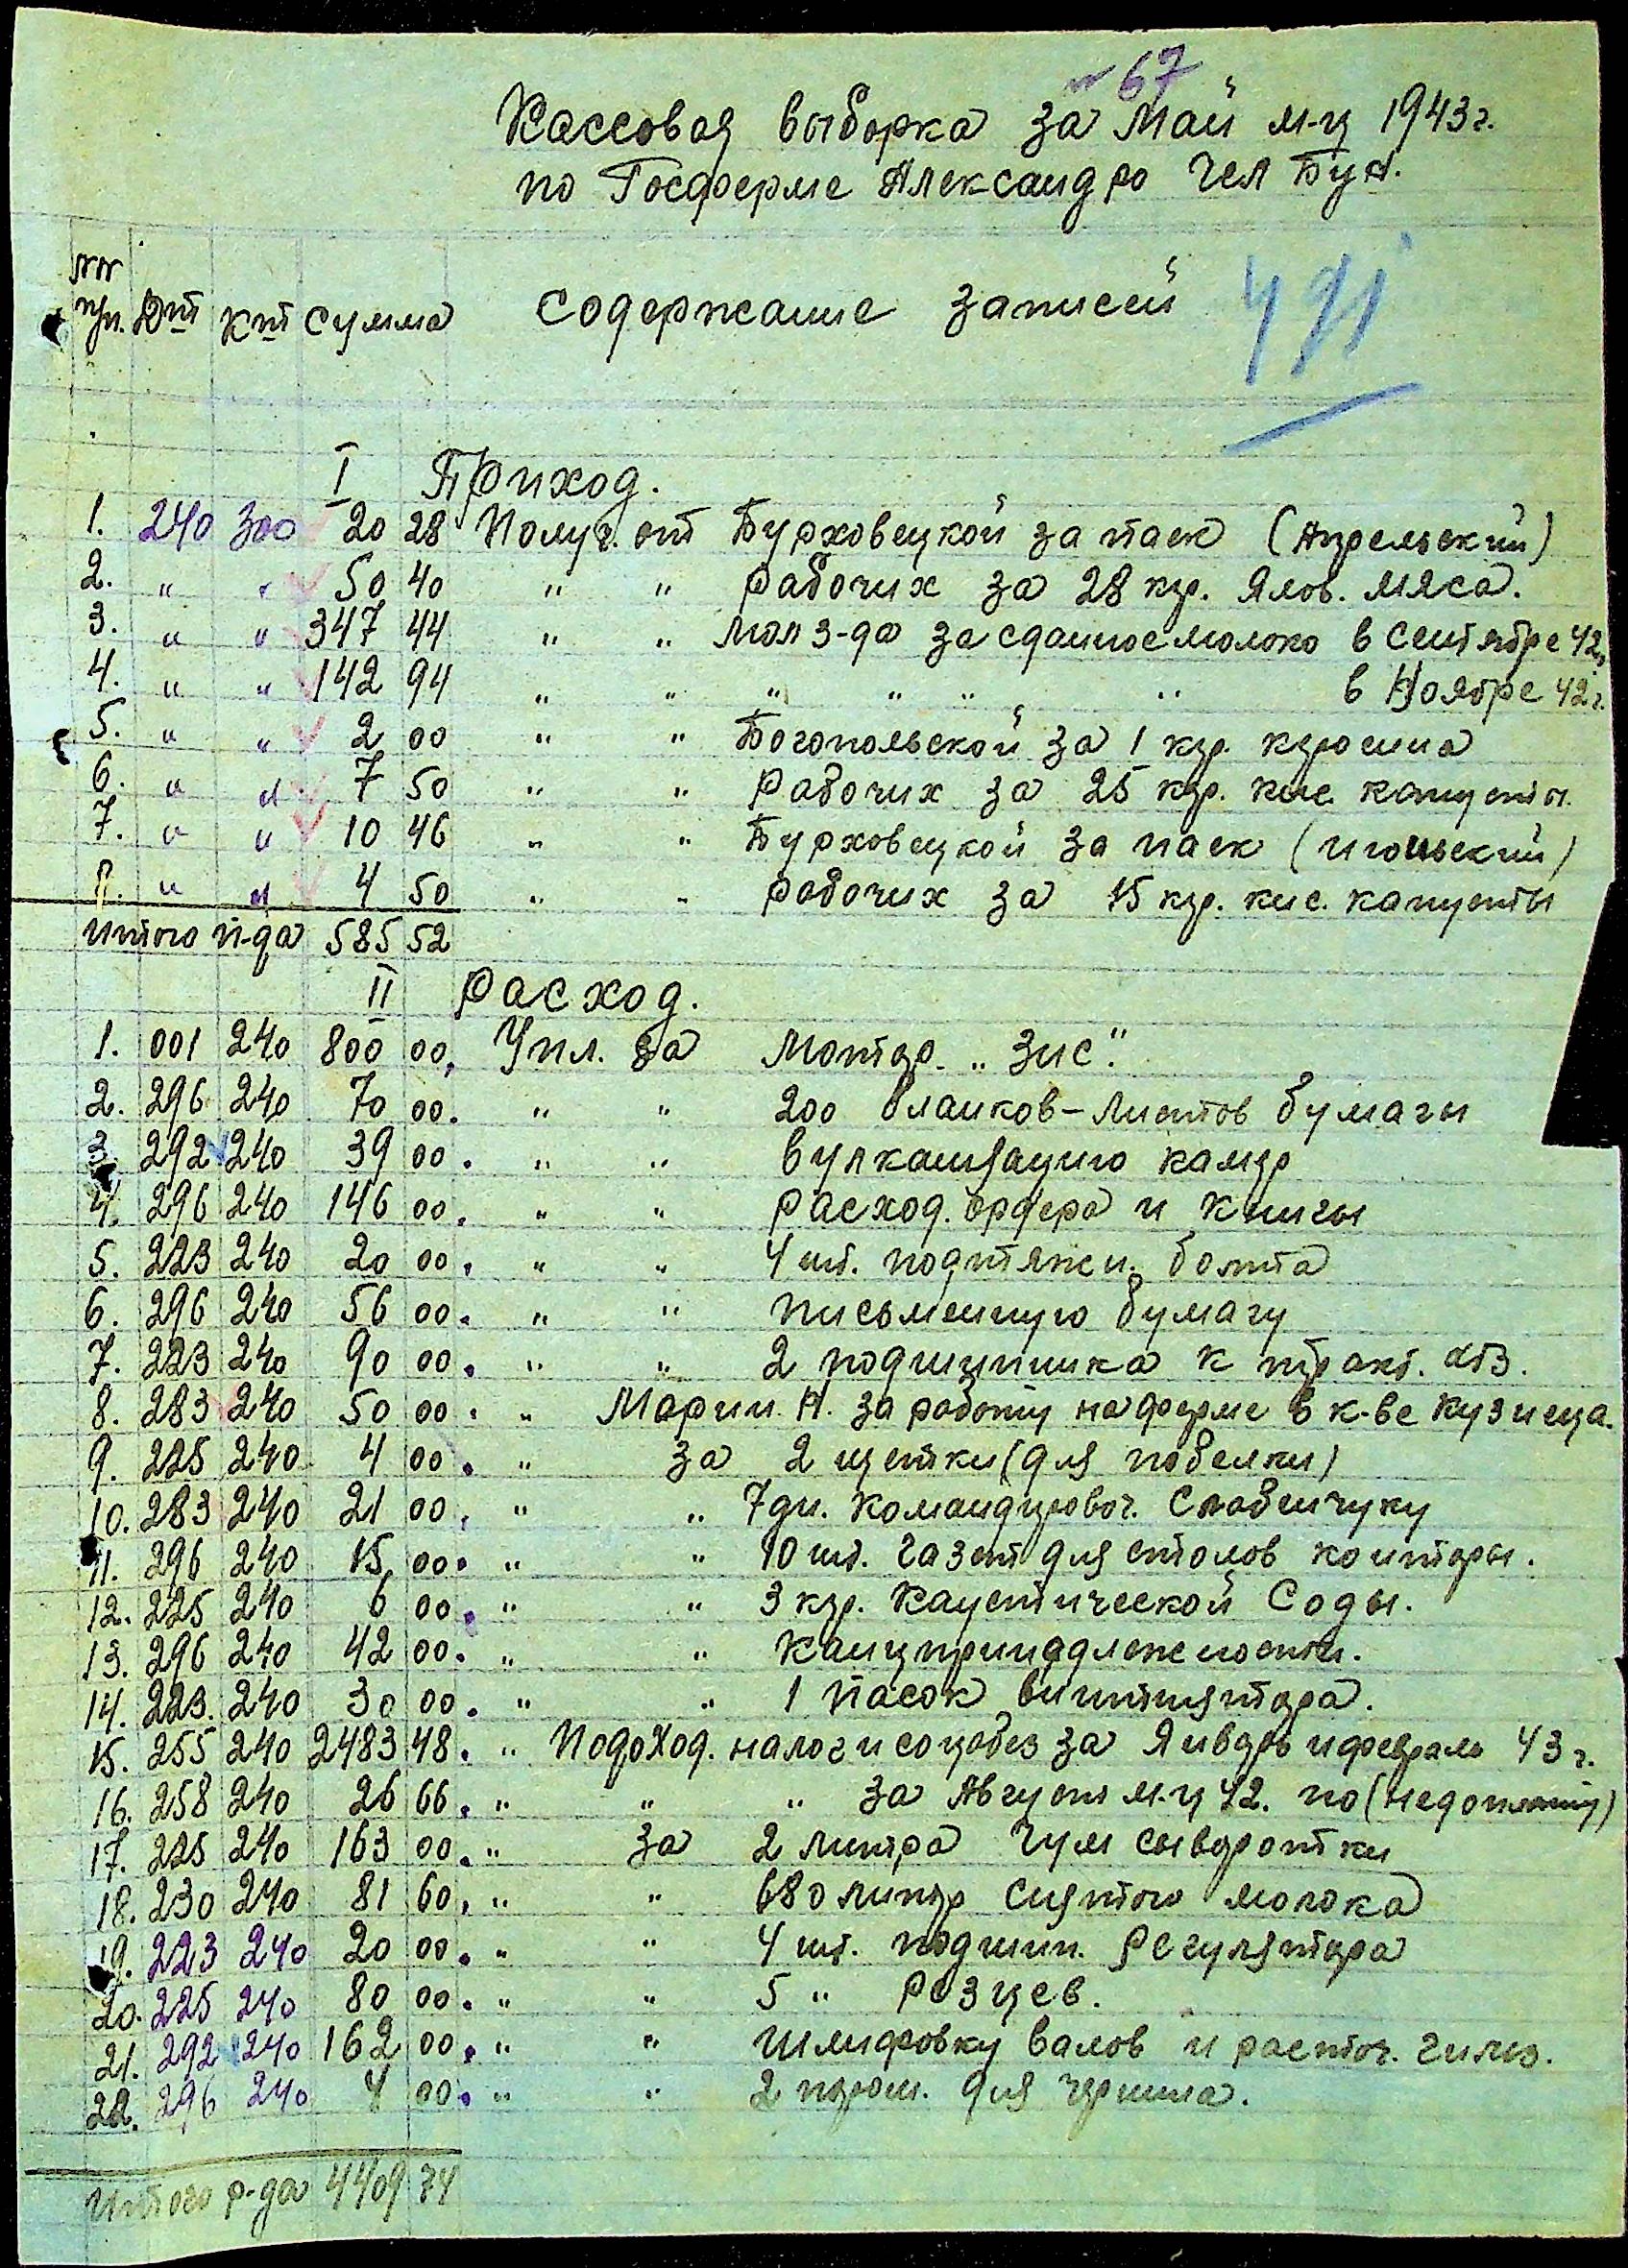 № 67
Кассовая выборка за Май м-ц 1943г.
по Госферме Александро Чел Бул.
№№ п/п. Дт Кт Сумма Содержание записей
491
I Приход.
1. 240 300 20 28 Получ. от Бурховецкой за паек (Апрельский)
2. " " 50 40 " " рабочих за 28 кгр. ялов. мяса.
3. " " 347 44 " " Мол з-да за сданное молоко в Сентябре 42г
4. " " 142 94 " " " " " " в Ноябре 42г.
5. " " 2 00 " " Богопольской за 1 кгр. кэросина
6. " " 7 50 " " Рабочих за 25 кгр. кис. капусты.
7. " " 10 46 " " Бурховецкой за паек (июньский)
8. " " 4 50 " " рабочих за 15 кгр. кис. капусты
Итого п-да 585 52
II Расход.
1. 001 240 800 00. Упл. за Мотор "Зис".
2. 296 240 70 00. " " 200 бланков-листов бумаги
3. 292 240 39 00. " " вулканизацию камер
4. 296 240 146 00. " " расход. ордера и книги
5. 223 240 20 00. " " 4 шт. подтяжн. болта
6. 296 240 56 00. " " письменную бумагу
7. 223 240 90 00. " " 2 подшипника к тракт. ХТЗ.
8. 283 240 50 00. " Марин. А. за работу на ферме в к-ве кузнеца.
9. 225 240 4 00. " за 2 щетки (для побелки)
10. 283 240 21 00. " " 7 дн. командировоч. Слабинчуку
11. 296 240 15 00. " " 10 шт. газет для столов конторы.
12. 225 240 6 00. " " 3 кгр. Каустической Соды.
13. 296 240 42 00. " " Канцпринадлежности.
14. 223. 240 30 00. " " 1 пасок вентилятора.
15. 255 240 2483 48. " Подоход. налог и соцобез за Январь и февраль 43г.
16. 258 240 26 66. " " " за Август м-ц 42. по (недоплату)
17. 225 240 163 00. " за 2 литра чум сыворотки
18. 230 240 81 60. " " 680 литр снятого молока
19. 223 240 20 00. " " 4 шт. подшип. регулятора
20. 225 240 80 00. " " 5 " Резцев.
21. 292 240 162 00. " " шлифовку валов и расточ. гильз.
22. 296 240 4 00. " " 2 порош. для чернила.
Итого р-да 4409 74